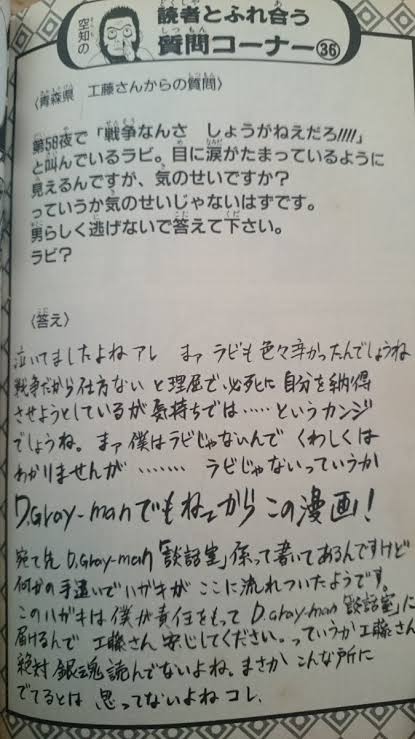 空知の
読者とふれ合う
質問コーナー㊱
〈青森県　工藤さんからの質問〉
第58夜で「戦争なんさ　しょうがねえだろ!!!!」
と叫んでいるラビ。目に涙がたまっているように
見えるんですが、気のせいですか？
っていうか気のせいじゃないはずです。
男らしく逃げないで答えて下さい。
ラビ？
〈答え〉
泣いてましたよねアレ　まァ ラビも色々辛かったんでしょうね
戦争だから仕方ない と理屈で必死に自分を納得
させようとしているが気持ちでは……というカンジ
でしょうね。まァ僕はラビじゃないんで くわしくは
わかりませんが ……… ラビじゃないっていうか
D.Gray-manでもねーからこの漫画！
宛て先 D.Gray-man「談話室」係って書いてあるんですけど
何かの手違いでハガキが ここに流れついたようです。
このハガキは僕が責任をもって D.Gray-man「談話室」に
届けるんで 工藤さん 安心してください。っていうか工藤さん
絶対 銀魂読んでないよね。まさか こんな所に
でてるとは 思ってないよねコレ、